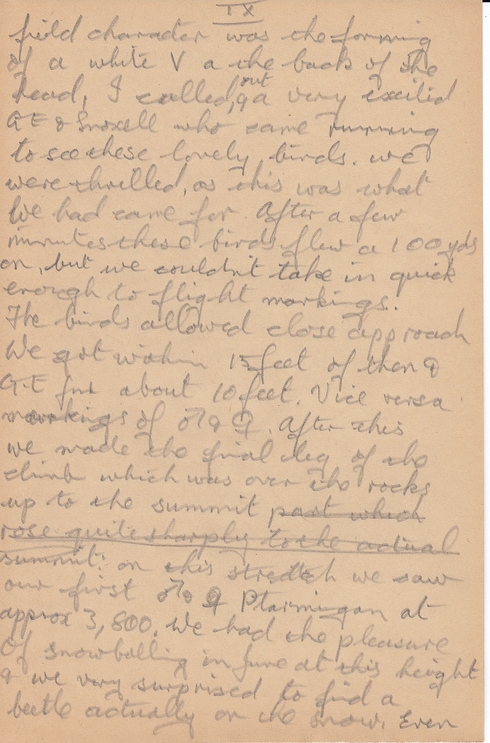 IX
field character was the forming
of a white V a the back of the
head, I called, out a very excited
G.E & Snoxell who came running
to see these lovely birds. we
were thrilled, as this was what
we had came for. After a few
minutes these birds flew a 100 yds
on, but we couldn't take in quick
enough to flight markings.
The birds allowed close approach
We got within 15 feet of them &
G.E for about 10 feet. Vice versa
markings of ♂ & ♀. After this
we made the final leg of the
climb which was over the rocks
up to the summit part which
rose quite sharply to the actual
summit: on this stretch we saw
our first ♂ & ♀ Ptarmigan at
approx 3,800. We had the pleasure
of snowballing in June at this height
& we very surprised to find a
beetle actually on the snow. Even